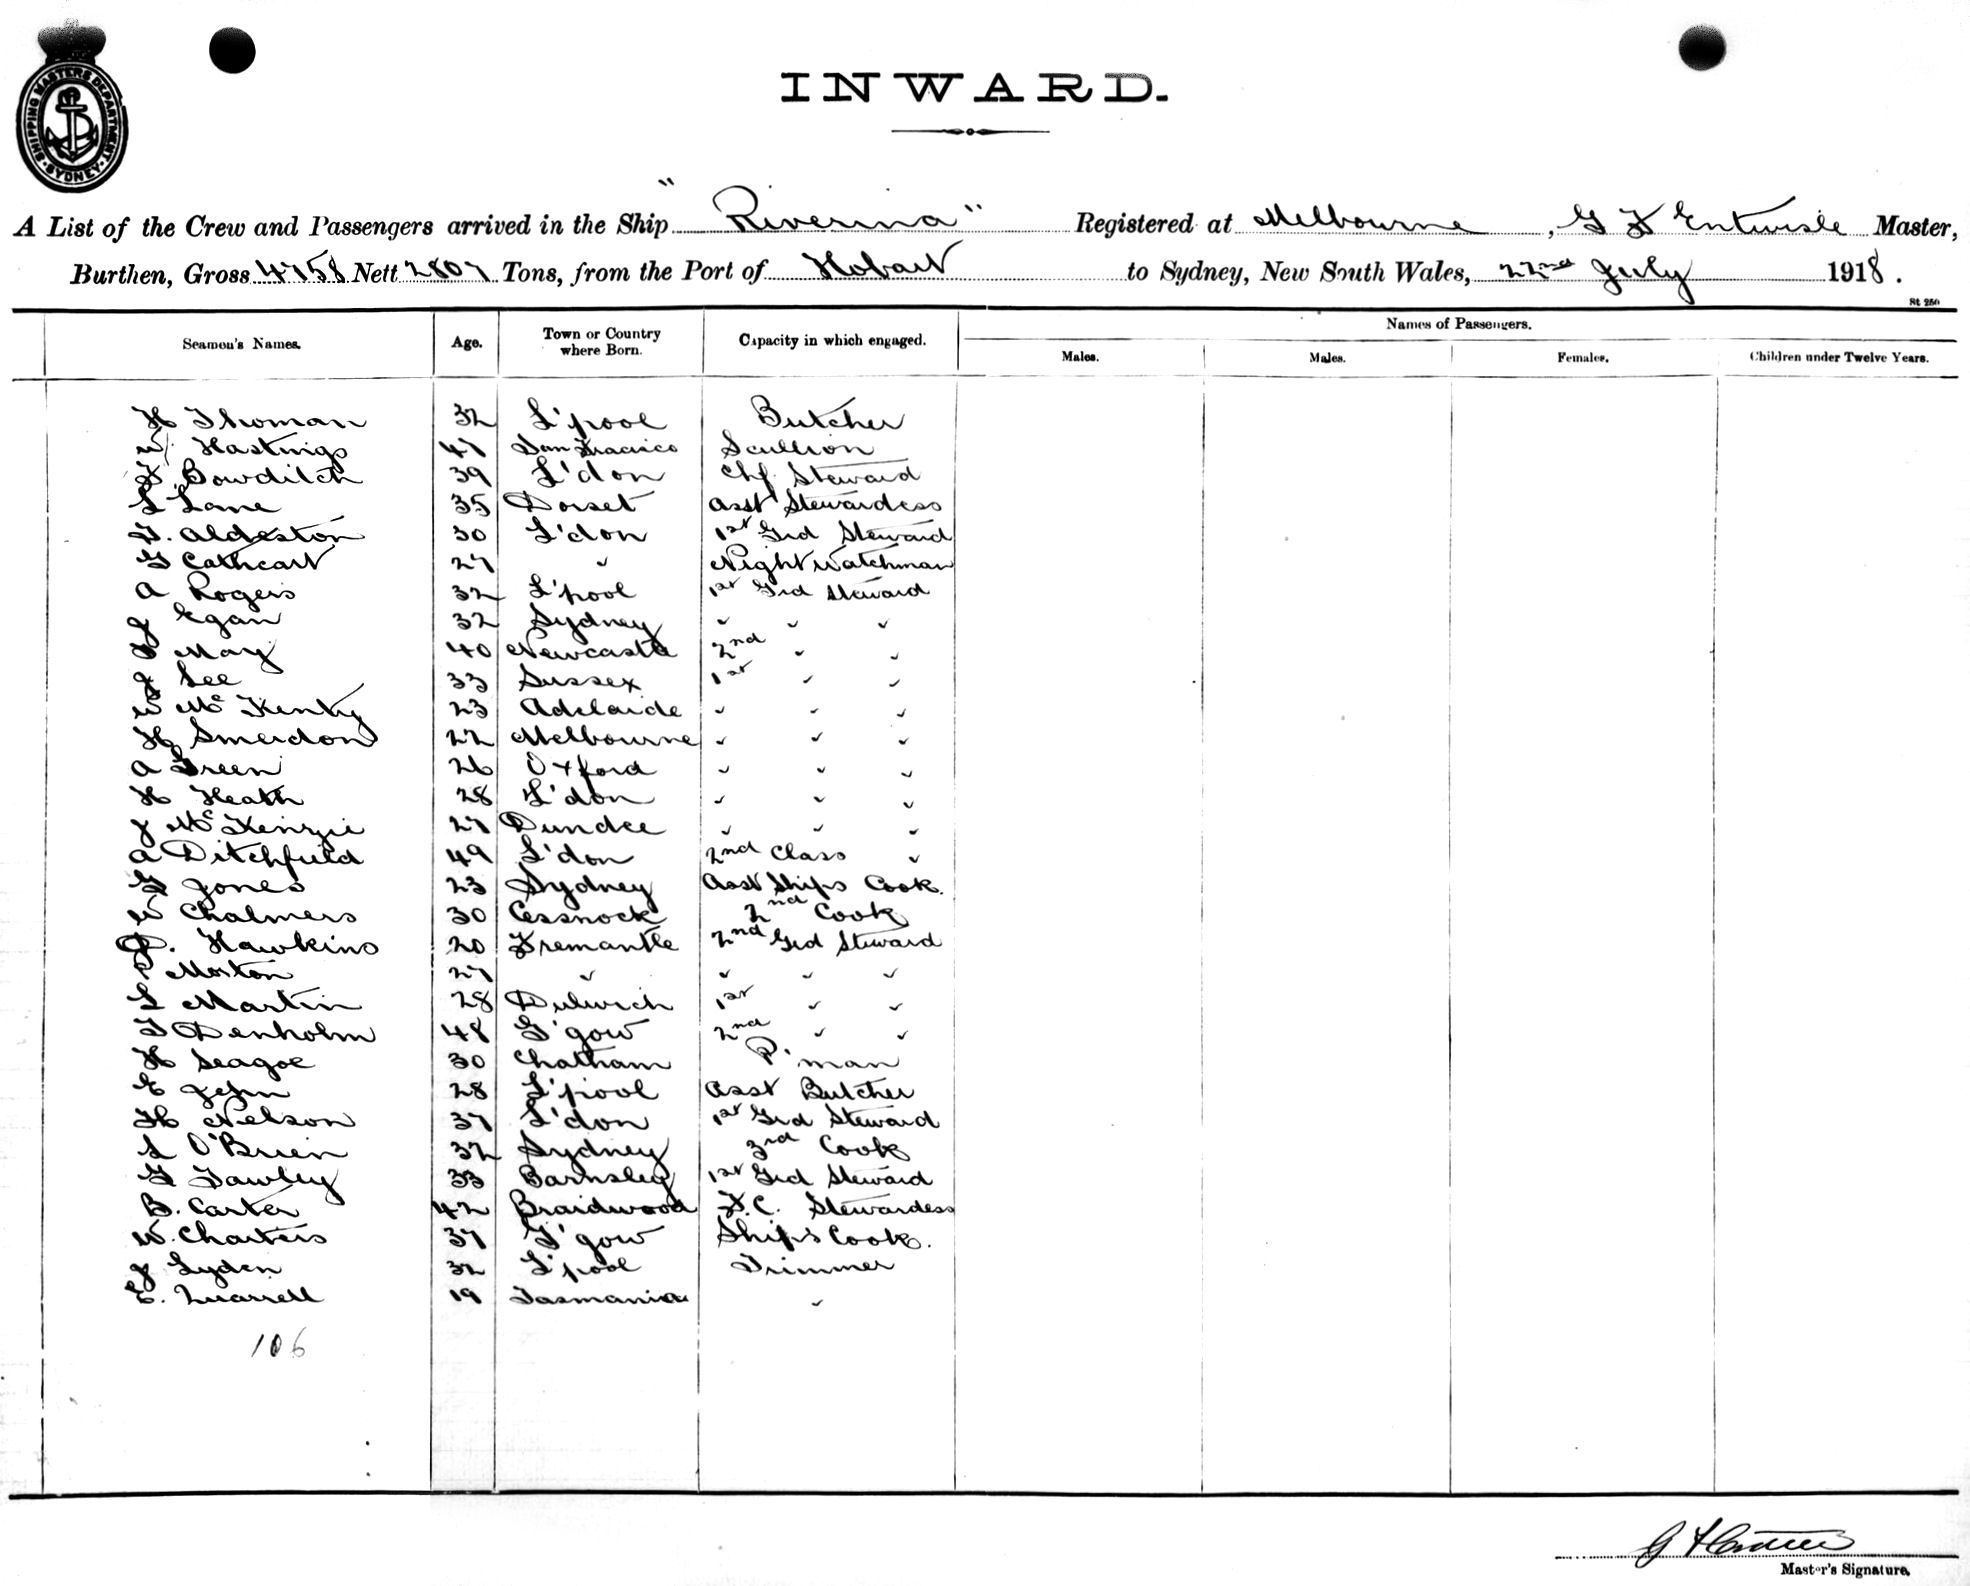 SHIPPING MASTERS DEPARTMENT
SYDNEY
INWARD.
A List of the Crew and Passengers arrived in the Ship "Riverina" Registered at Melbourne, G F Entwisle Master,
Burthen, Gross 4758 Nett 2807 Tons, from the Port of Hobart to Sydney, New South Wales, 22nd July 1918.
St 250
Names of Passengers.
Seamen's Names. Age. Town or Country where Born. Capacity in which engaged. Males. Males. Females. Children under Twelve Years.
H Thoman 32 L'pool Butcher
W Hastings 47 San Fracisco Scullion
F Bowditch 39 L'don Chf Steward
L Lane 35 Dorset Asst Stewardess
T. Aldeston 30 L'don 1st Grd Steward
G Cathcart 27 " Night Watchman
A Rogers 32 L'pool 1st Grd Steward
J Egan 32 Sydney " " "
May 40 Newcastle 2nd " "
J Lee 33 Sussex 1st " "
W 23 Adelaide " " "
H Smerdon 22 Melbourne " " "
A Green 26 Oxford " " "
H Heath 28 L'don " " "
J McKenzie 27 Dundee " " "
A Ditchfield 49 L'don 2nd Class "
G Jones 23 Sydney Asst Ships Cook.
W Chalmers 30 Cessnock 2nd Cook
Hawkins 20 Fremantle 2nd Grd Steward
P Morton 27 " " " "
L Martin 28 Dulwich 1st " "
T Denholm 48 G'gow 2nd " "
H Seagoe 30 Chatham P'man
E John 28 L'pool Asst Butcher
H Nelson 37 L'don 1st Grd Steward
L O'Brien 32 Sydney 3rd Cook
G Tawley 33 Barnsley 1st Grd Steward
B. Carter 42 Braidwood F.C. Stewardess
W. Charters 37 G'gow Ships Cook.
J Lyden 32 L'pool Trimmer
E. Quarrell 19 Tasmania "
106
Master's Signature.